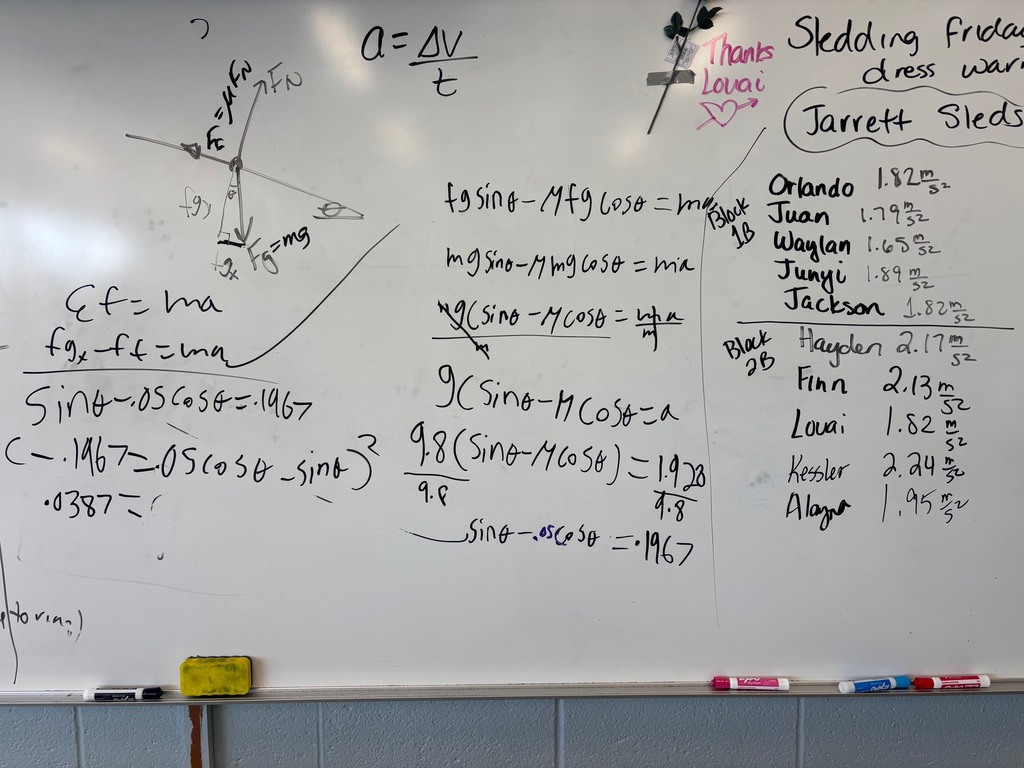 a = ΔV
t
FN
Ff = μFN
θ
θ
fgy
fgx
Fg = mg
Σf = ma
fgx - ff = ma
Sinθ - .05cosθ = .1967
(- .1967 = .05cosθ - sinθ)²
.0387 = (
fgsinθ - Mfgcosθ = ma
mgsinθ - Mmgcosθ = ma
mg(sinθ - Mcosθ = ma
m m
g(sinθ - Mcosθ = a
9.8(sinθ - Mcosθ) = 1.928
9.8 9.8
sinθ - .05cosθ = .1967
Thanks
Louai
Sledding Friday
dress war
Jarrett Sleds
Block
1B
Orlando 1.82 m/s²
Juan 1.79 m/s²
Waylan 1.65 m/s²
Junyi 1.89 m/s²
Jackson 1.82 m/s²
Block
2B
Hayden 2.17 m/s²
Finn 2.13 m/s²
Louai 1.82 m/s²
Kessler 2.24 m/s²
Alayna 1.95 m/s²